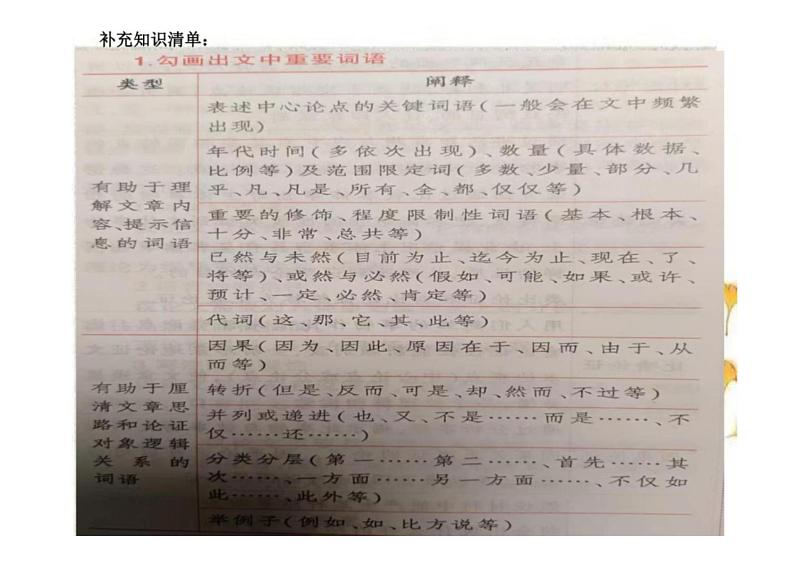 补充知识清单：
1.勾画出文中重要词语
类型
阐释
有助于理
解文章内
容、提示信
息的词语
表述中心论点的关键词语(一般会在文中频繁
出现)
年代时间(多依次出现)、数量(具体数据、
比例等)及范围限定词(多数、少量、部分、几
乎、凡、凡是、所有、全、都、仅仅等)
重要的修饰、程度限制性词语(基本、根本、
十分、非常、总共等)
已然与未然(目前为止、迄今为止、现在、了、
将等)、或然与必然(假如、可能、如果、或许、
预计、一定、必然、肯定等)
代词(这、那、它、其、此等)
有助于厘
清文章思
路和论证
对象逻辑
关系的
词语
因果(因为、因此、原因在于、因而、由于、从
而等)
转折(但是、反而、可是、却、然而、不过等)
并列或递进(也、又、不是……而是……、不
仅……还……)
分类分层(第一……第二……、首先……其
次……、一方面……另一方面……、不仅如
此……、此外等)
举例子(例如、如、比方说等)